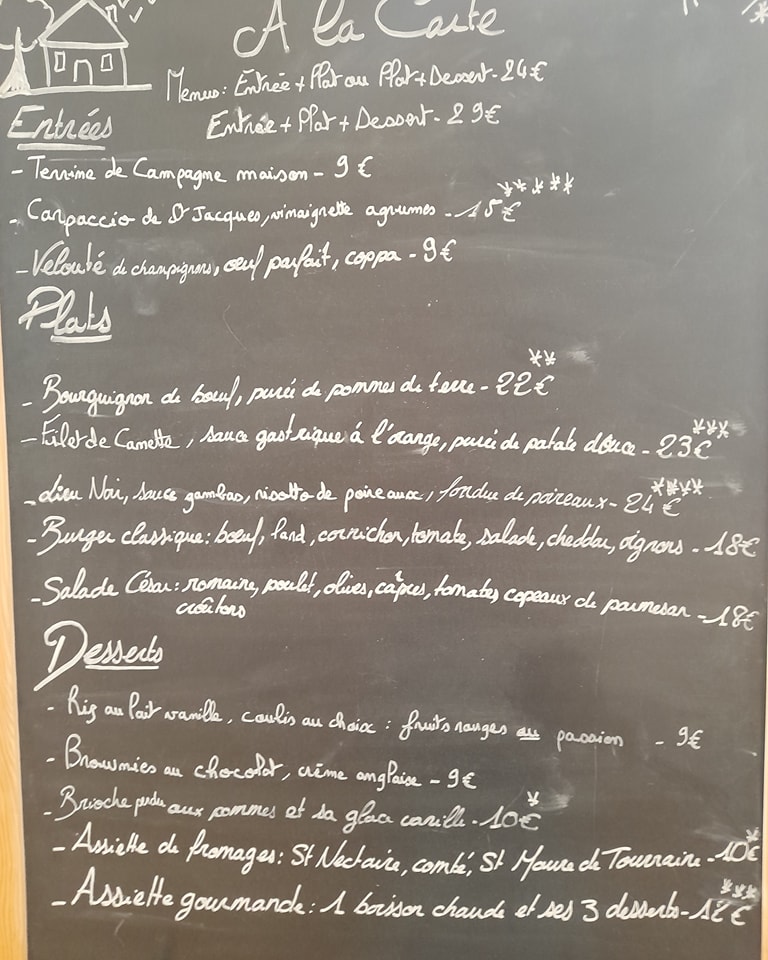 A la Carte
Menus: Entrée + Plat ou Plat + Dessert - 24€
Entrée + Plat + Dessert - 29€
Entrées
- Terrine de Campagne maison - 9€
*****
- Carpaccio de St Jacques, vinaigrette agrumes - 15€
- Velouté de champignons, œuf parfait, coppa - 9€
Plats
**
- Bourguignon de bœuf, purée de pommes de terre - 22€
***
- Filet de Canette, sauce gastrique á l'orange, purée de patate douce - 23€
****
- Lieu Noir, sauce gambas, risotto de poireaux, fondue de poireaux - 24€
- Burger classique: bœuf, lard, cornichon, tomate, salade, cheddar, oignons - 18€
- Salade César: romaine, poulet, olives, câpres, tomates copeaux de parmesan - 18€
croûtons
Desserts
- Riz au lait vanille, coulis au choix: fruits rouges ou passion - 9€
- Brownies au chocolat, crème anglaise - 9€
*
- Brioche perdu aux pommes et sa glace vanille - 10€
*
- Assiette de fromages: St Nectaire, comté, St Maure de Tourraine - 10€
***
- Assiette gourmande: 1 boisson chaude et ses 3 desserts - 12€